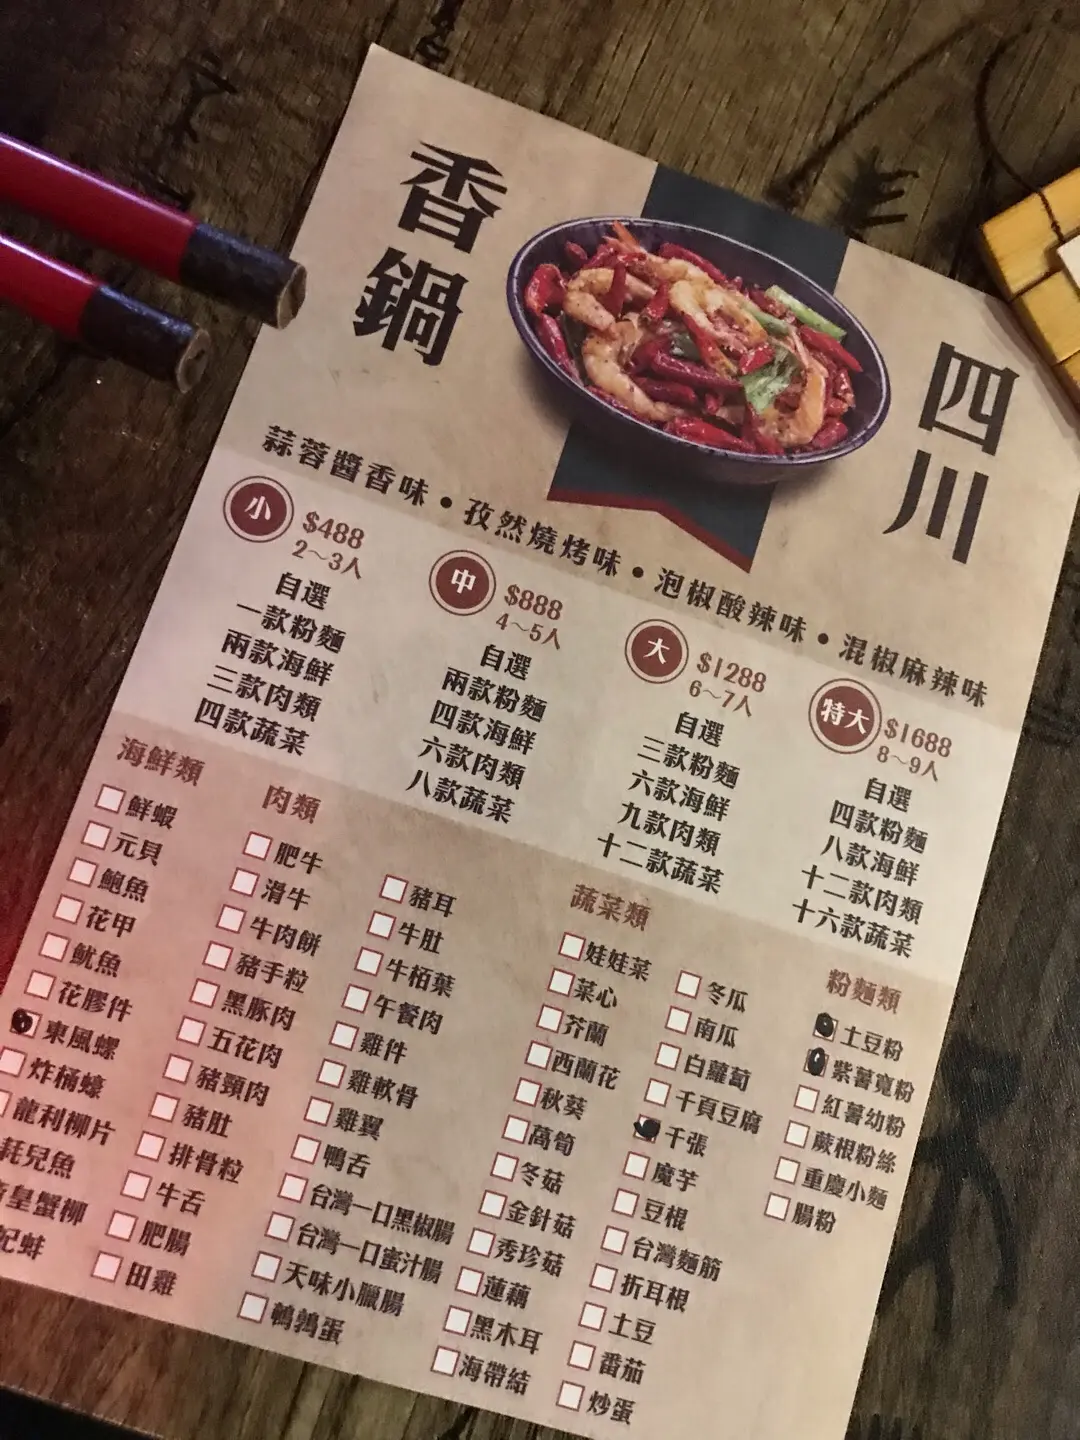 四川
香鍋
蒜蓉醬香味 • 孜然燒烤味 • 泡椒酸辣味 • 混椒麻辣味
小
$488
2～3人
自選
一款粉麵
兩款海鮮
三款肉類
四款蔬菜
中
$888
4～5人
自選
兩款粉麵
四款海鮮
六款肉類
八款蔬菜
大
$1288
6～7人
自選
三款粉麵
六款海鮮
九款肉類
十二款蔬菜
特大
$1688
8～9人
自選
四款粉麵
八款海鮮
十二款肉類
十六款蔬菜
海鮮類
鮮蝦
元貝
鮑魚
花甲
魷魚
花膠件
東風螺
炸桶蠔
龍利柳片
耗兒魚
皇蟹柳
蚌
肉類
肥牛
滑牛
牛肉餅
豬手粒
黑豚肉
五花肉
豬頸肉
豬肚
排骨粒
牛舌
肥腸
田雞
豬耳
牛肚
牛栢葉
午餐肉
雞件
雞軟骨
雞翼
鴨舌
台灣一口黑椒腸
台灣一口蜜汁腸
天味小臘腸
鵪鶉蛋
蔬菜類
娃娃菜
菜心
芥蘭
西蘭花
秋葵
萵筍
冬菇
金針菇
秀珍菇
蓮藕
黑木耳
海帶結
冬瓜
南瓜
白蘿蔔
千頁豆腐
千張
魔芋
豆棍
台灣麵筋
折耳根
土豆
番茄
炒蛋
粉麵類
土豆粉
紫薯寬粉
紅薯幼粉
蕨根粉絲
重慶小麵
腸粉